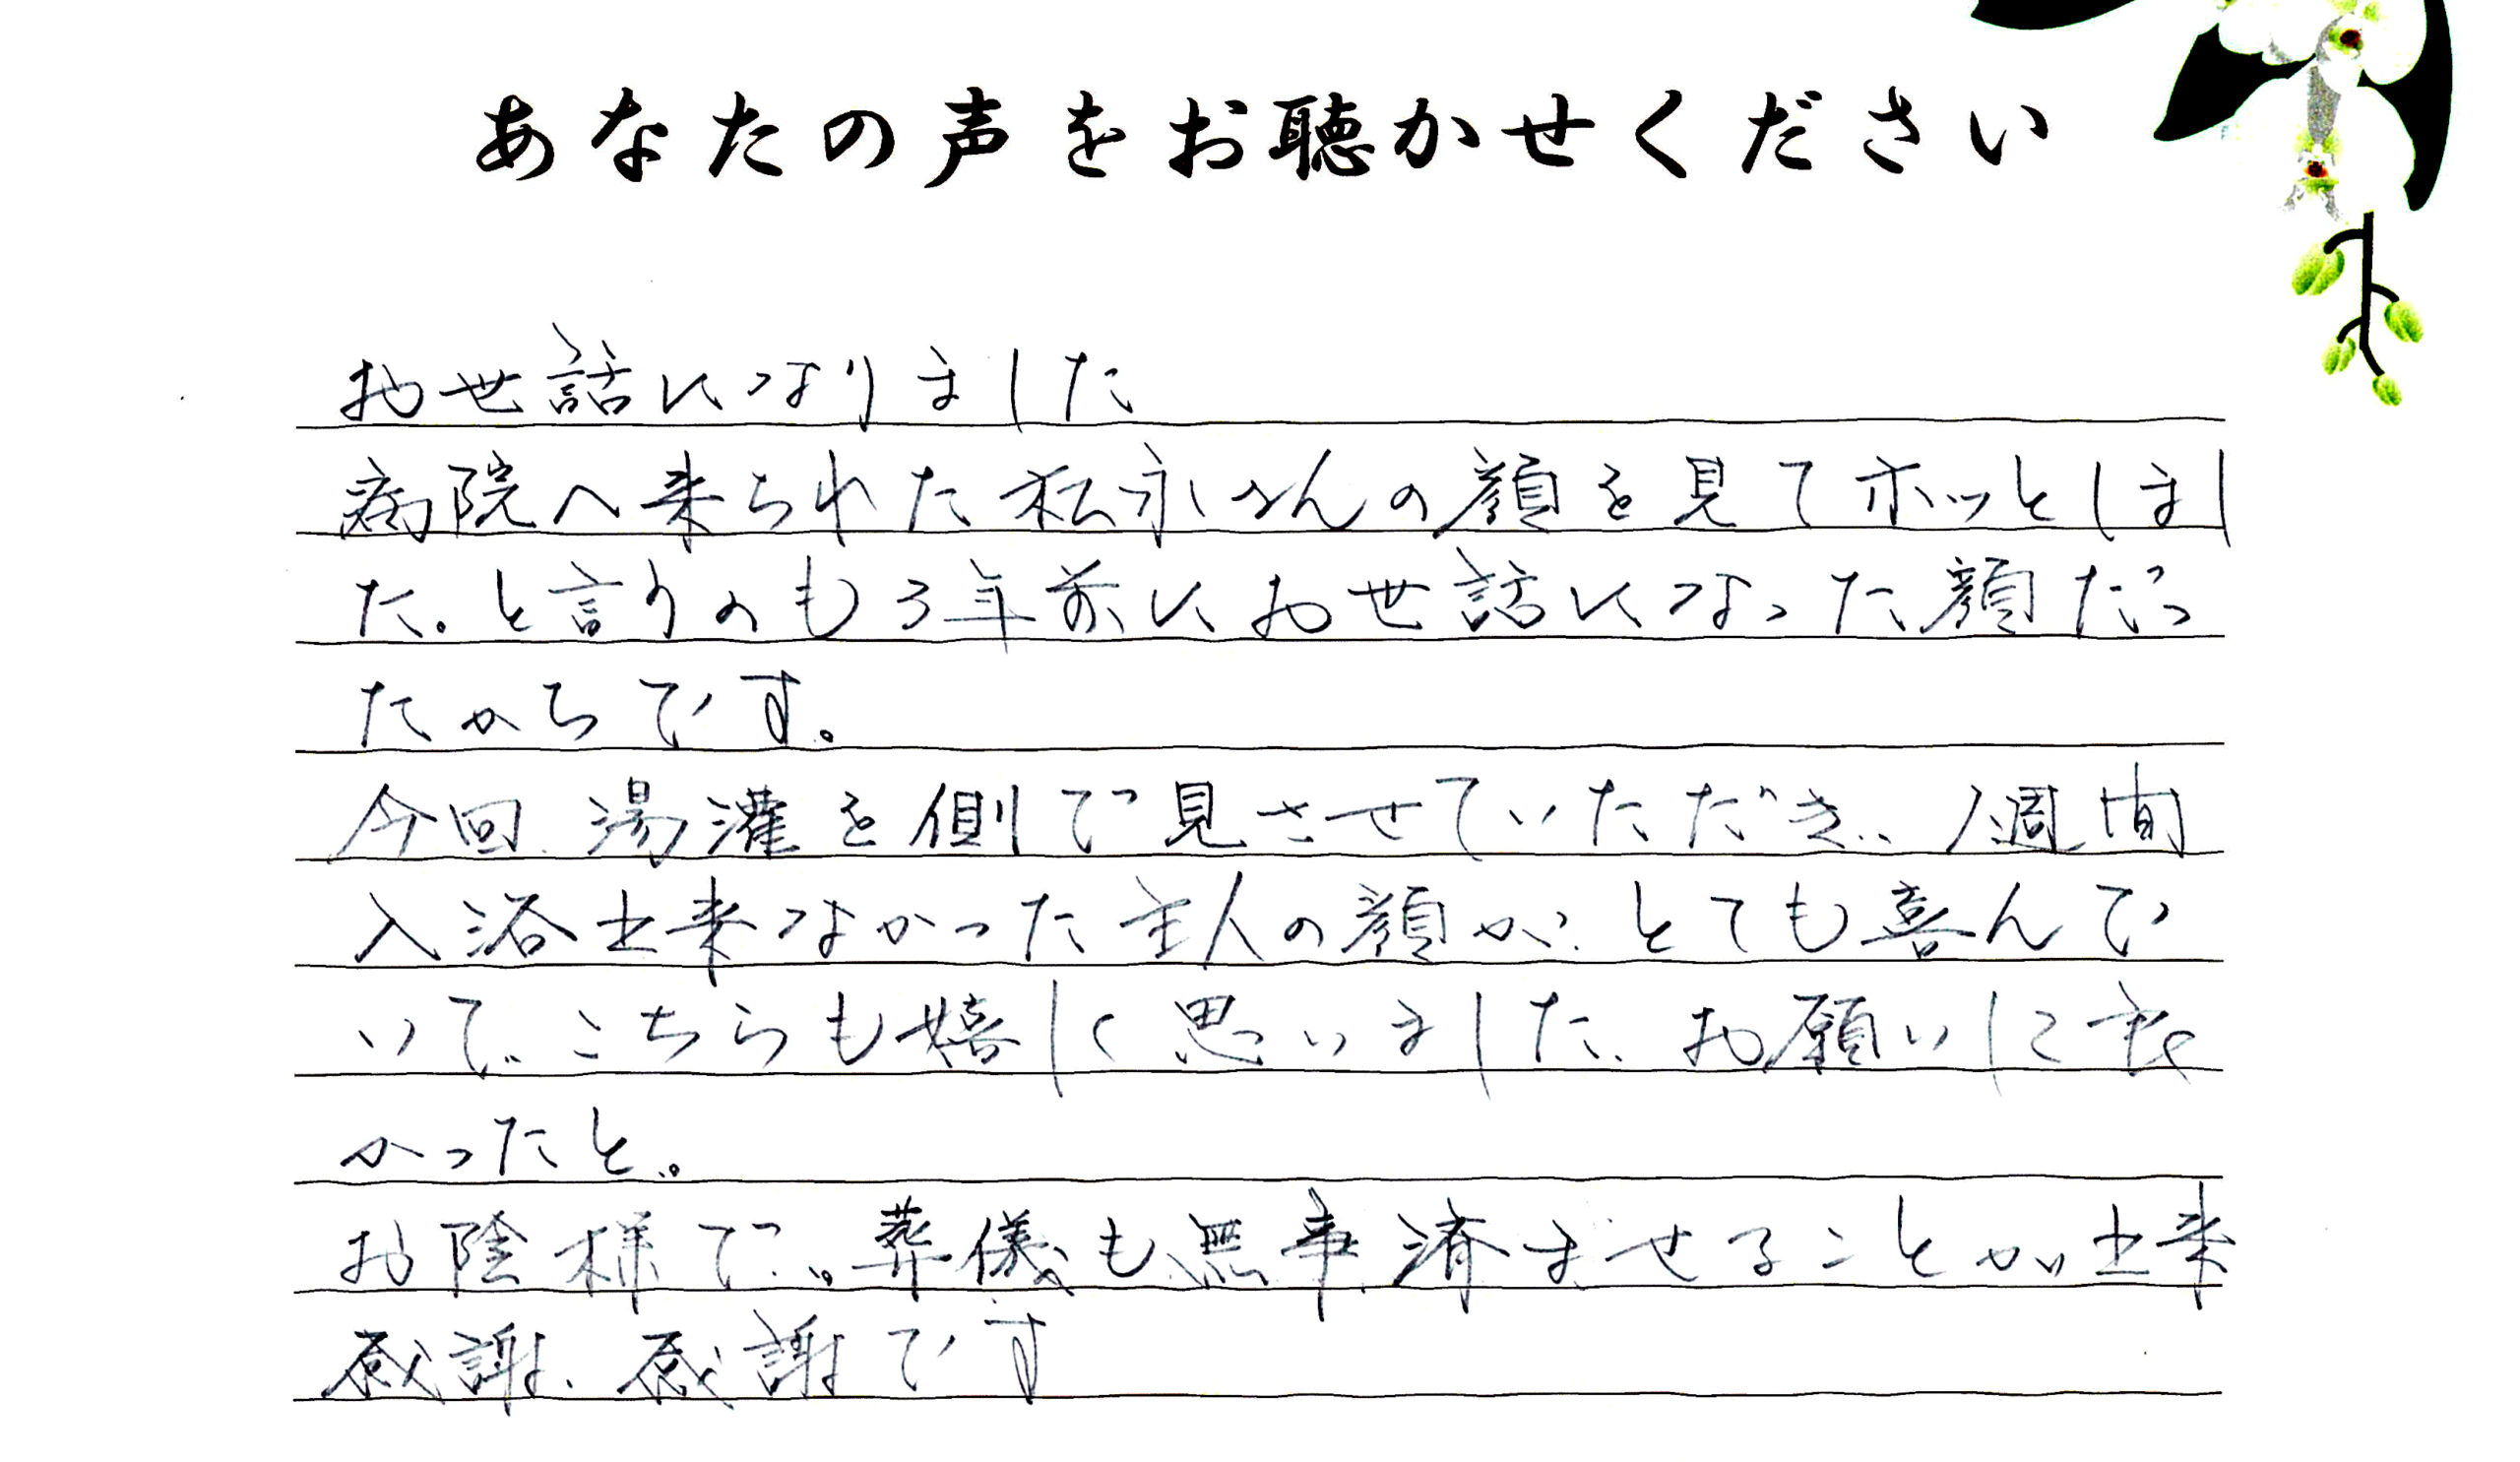 あなたの声をお聴かせください
お世話になりました
病院へ来られた松永さんの顔を見てホッとしまし
た。と言うのも3年前にお世話になった顔だっ
たからです。
今回、湯灌を側で見させていただき、1週間
入浴出来なかった主人の顔が、とても喜んで
いて、こちらも嬉しく思いました、お願いして良
かったと。
お陰様で、葬儀も無事済ませることが出来
感謝、感謝です